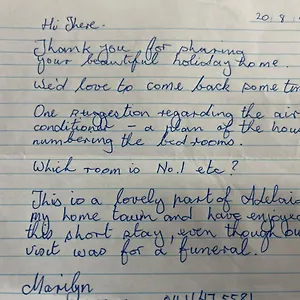 20.8.
Hi There.
Thank you for sharing
your beautiful holiday home.
We'd love to come back some tim
One suggestion regarding the air
conditioner – a plan of the hous
numbering the bedrooms.
Which room is No.1 etc?
This is a lovely part of Adelaid
my home town and have enjoyed
this short stay, even though ou
visit was for a funeral.
Marilyn